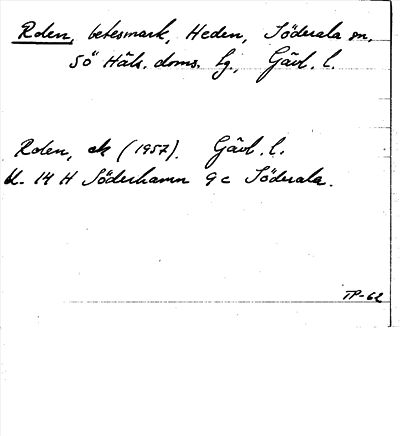 Roden, betesmark, Heden, Söderala sn,
SÖ Häls. doms. lg., Gävl. l.
Roden, ek (1957). Gävl. l.
bl. 14 H Söderhamn 9 c Söderala.
TP-62